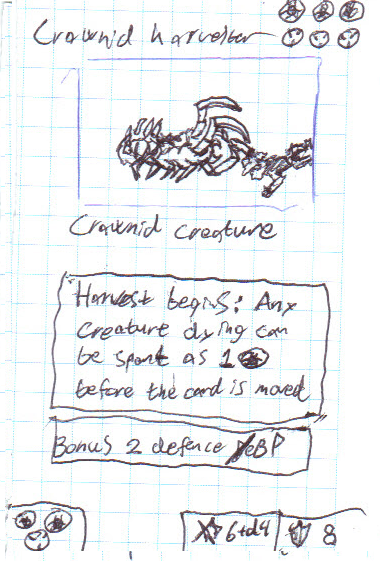 Crownid harvester
Crownid creature
Harvest begins: Any
creature dying can
be spent as 1
before the card is moved
Bonus 2 defence BP
6+d4
8